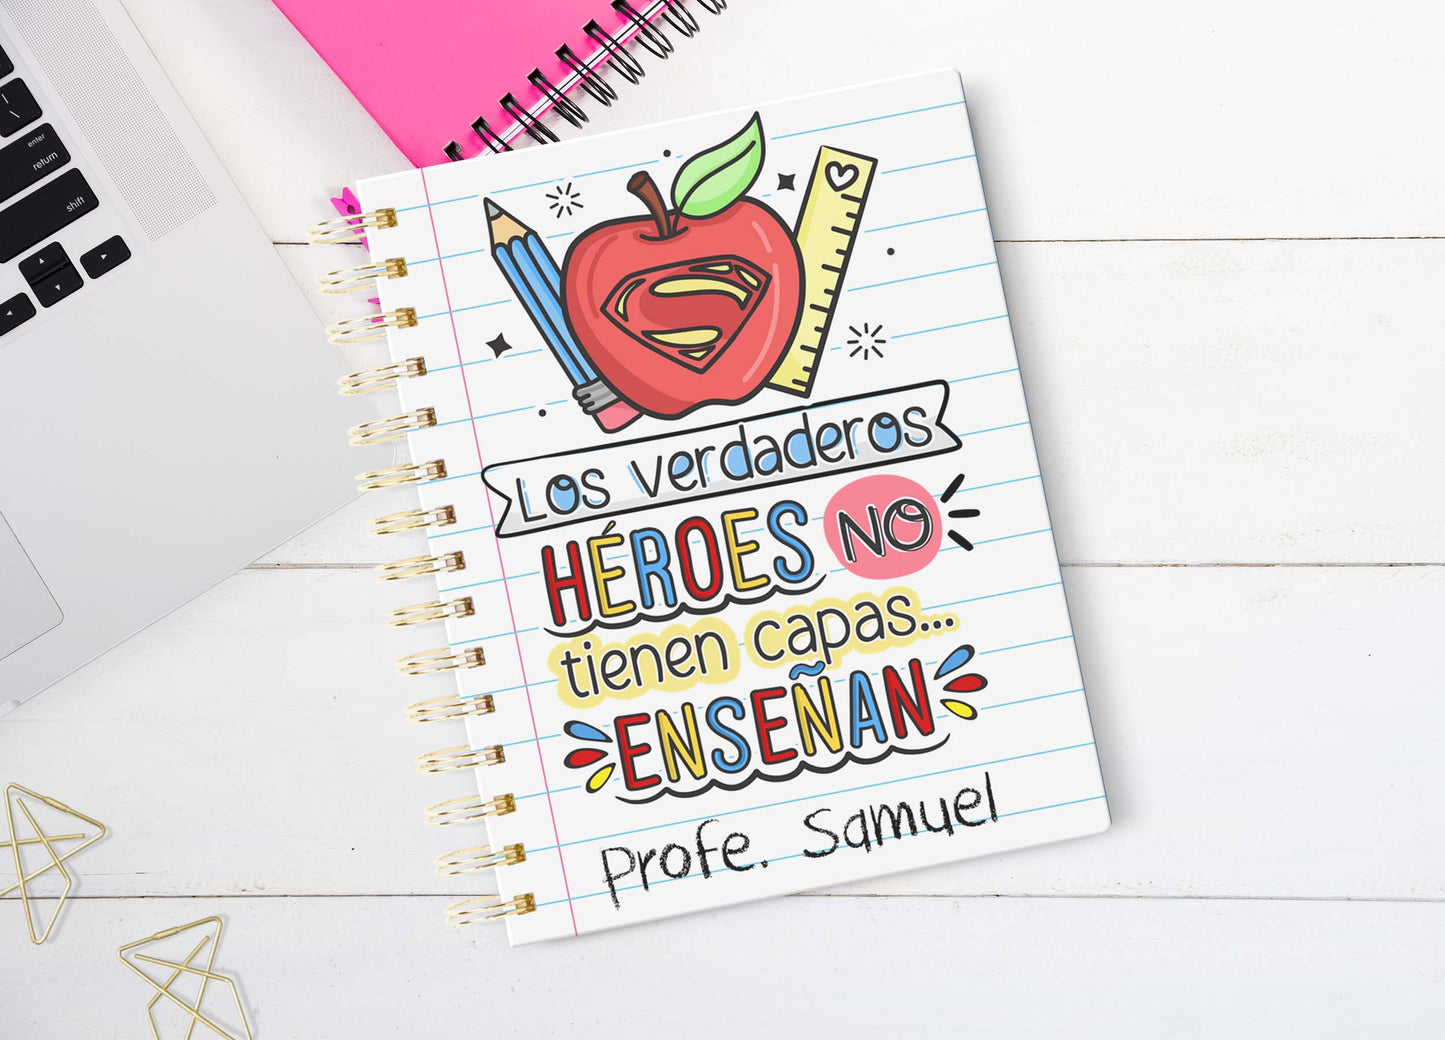 enter
return
shift
Los verdaderos
HÉROES NO
tienen capas...
ENSEÑAN
Profe. Samuel